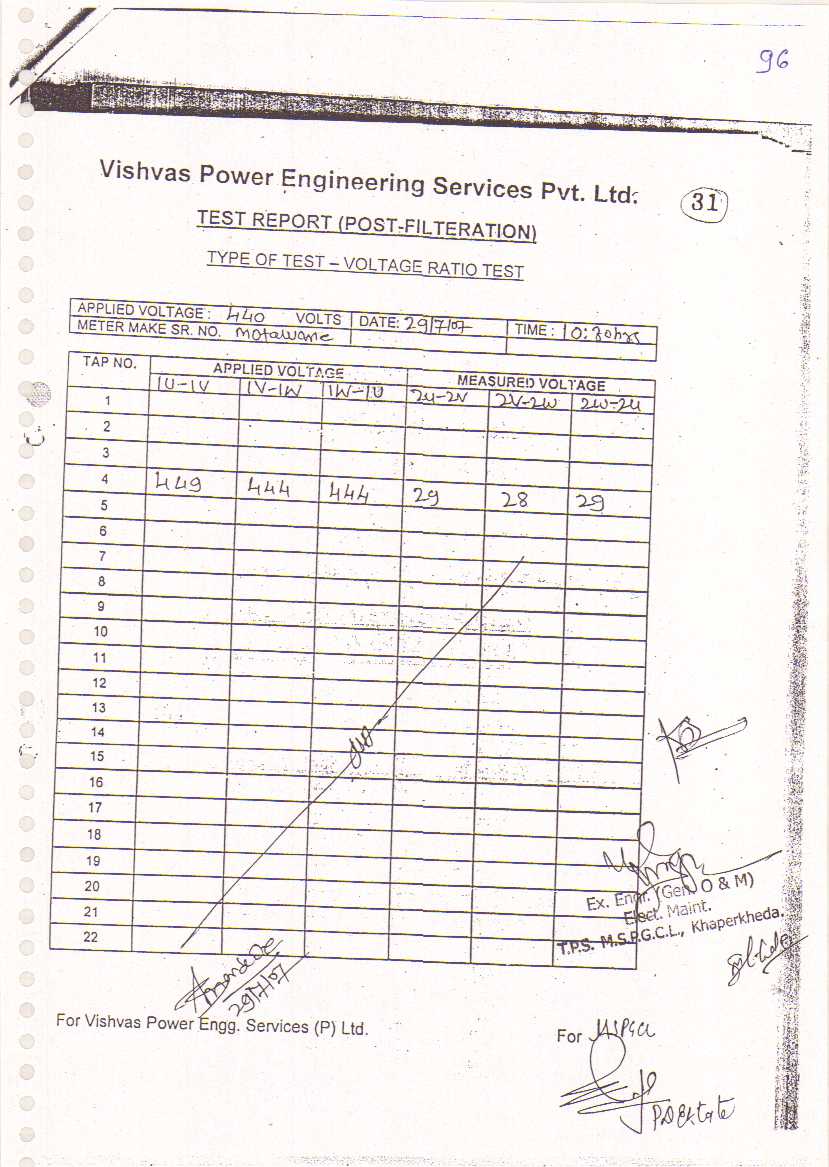 96
Vishvas Power Engineering Services Pvt. Ltd.
31
TEST REPORT (POST-FILTERATION)
TYPE OF TEST – VOLTAGE RATIO TEST
APPLIED VOLTAGE : 440 VOLTS DATE: 29/7/07 TIME : 10:30hrs
METER MAKE SR. NO. Motawane
TAP NO. APPLIED VOLTAGE MEASURED VOLTAGE
1U-1V 1V-1W 1W-1U 2U-2V 2V-2W 2W-2U
1
2
3
4 449 444 444 29 28 29
5
6
7
8
9
10
11
12
13
14
15
16
17
18
19
20
21
22
Ex. Engr. (Gen. O & M)
Elect. Maint.
T.P.S. M.S.P.G.C.L., Khaperkheda.
29/7/07
For Vishvas Power Engg. Services (P) Ltd.
For MSPGCL